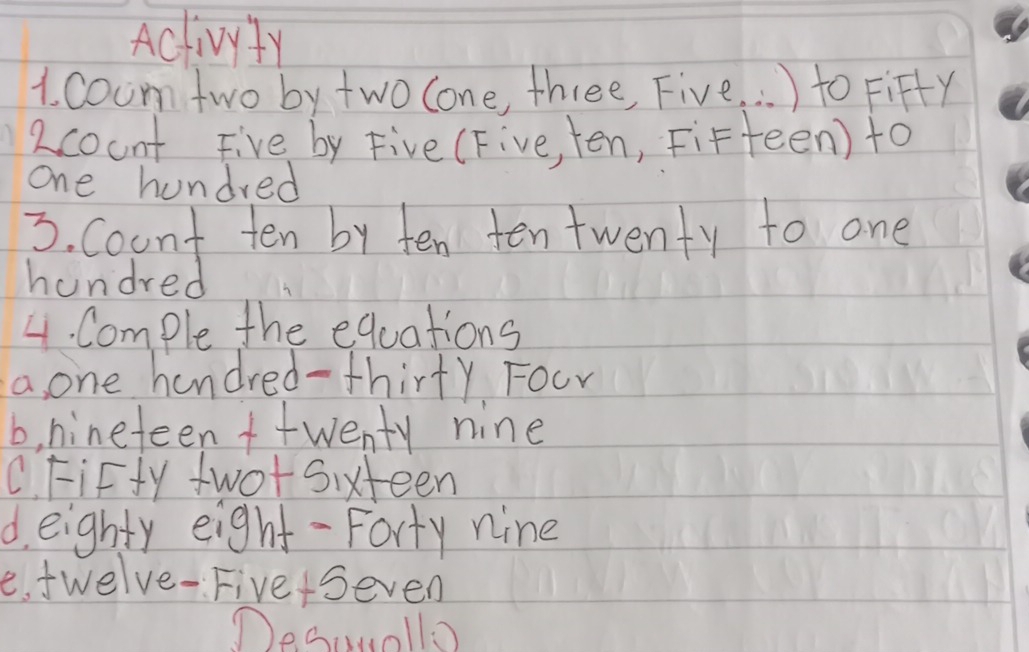 Activyty
1. Coum two by two (one, three, Five...) to FiFty
2 count Five by Five (Five, ten, FiFteen) to
one hundred
3. Count ten by ten ten twenty to one
hundred
4. Comple the equations
a, one hundred - thirty Four
b, nineteen + twenty nine
C. FiFty two + Sixteen
d. eighty eight - Forty nine
e, twelve - Five + Seven
Desarrollo